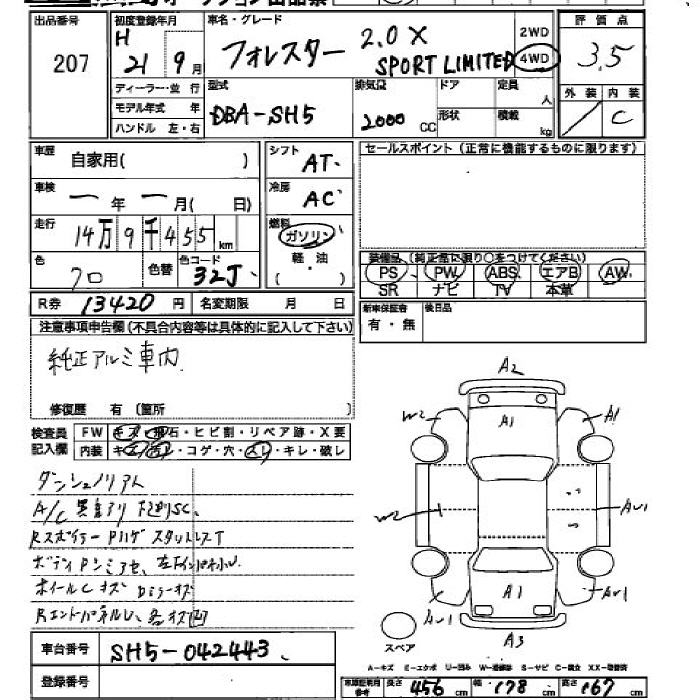 出品番号
207
初度登録年月
H 21 9月
ディーラー・並行
モデル年式 年
ハンドル 左・右
車名・グレード
フォレスター 2.0 X
SPORT LIMITED
2WD
4WD
評価点
3.5
外装 内装
/ C
型式
DBA-SH5
排気量
2000 CC
ドア
形状
定員
人
積載
kg
車歴
自家用( )
車検
年 月( 日)
走行
14万9千455km
色
クロ
色替
色コード
32J
シフト
AT
冷房
AC
燃料
ガソリン
軽・油
( )
セールスポイント(正常に機能するものに限ります)
装備品(純正品に限り○をつけてください)
PS PW ABS エアB AW
SR ナビ TV 本革
R券 13420円 名変期限 月 日
新車保証書
有・無
後日品
注意事項申告欄(不具合内容等は具体的に記入して下さい)
純正アルミ車内
修復歴 有(箇所 )
検査員
記入欄
FW キズ・飛石・ヒビ割・リペア跡・X要
内装 キズ・汚レ・コゲ・穴・スレ・キレ・破レ
A/C 異音アリ 下廻りSC
RスポイラーPハゲ
ホイールCキズ
車台番号
SH5-042443
登録番号
A2
A1
W2
A1
W2
AU1
A1
AU1
AU1
A3
スペア
A-キズ E-エクボ U-凹み W-補修跡 S-サビ C-腐食 XX-取替済
車検証転用参考
長さ 456 cm
幅 178 cm
高さ 167 cm